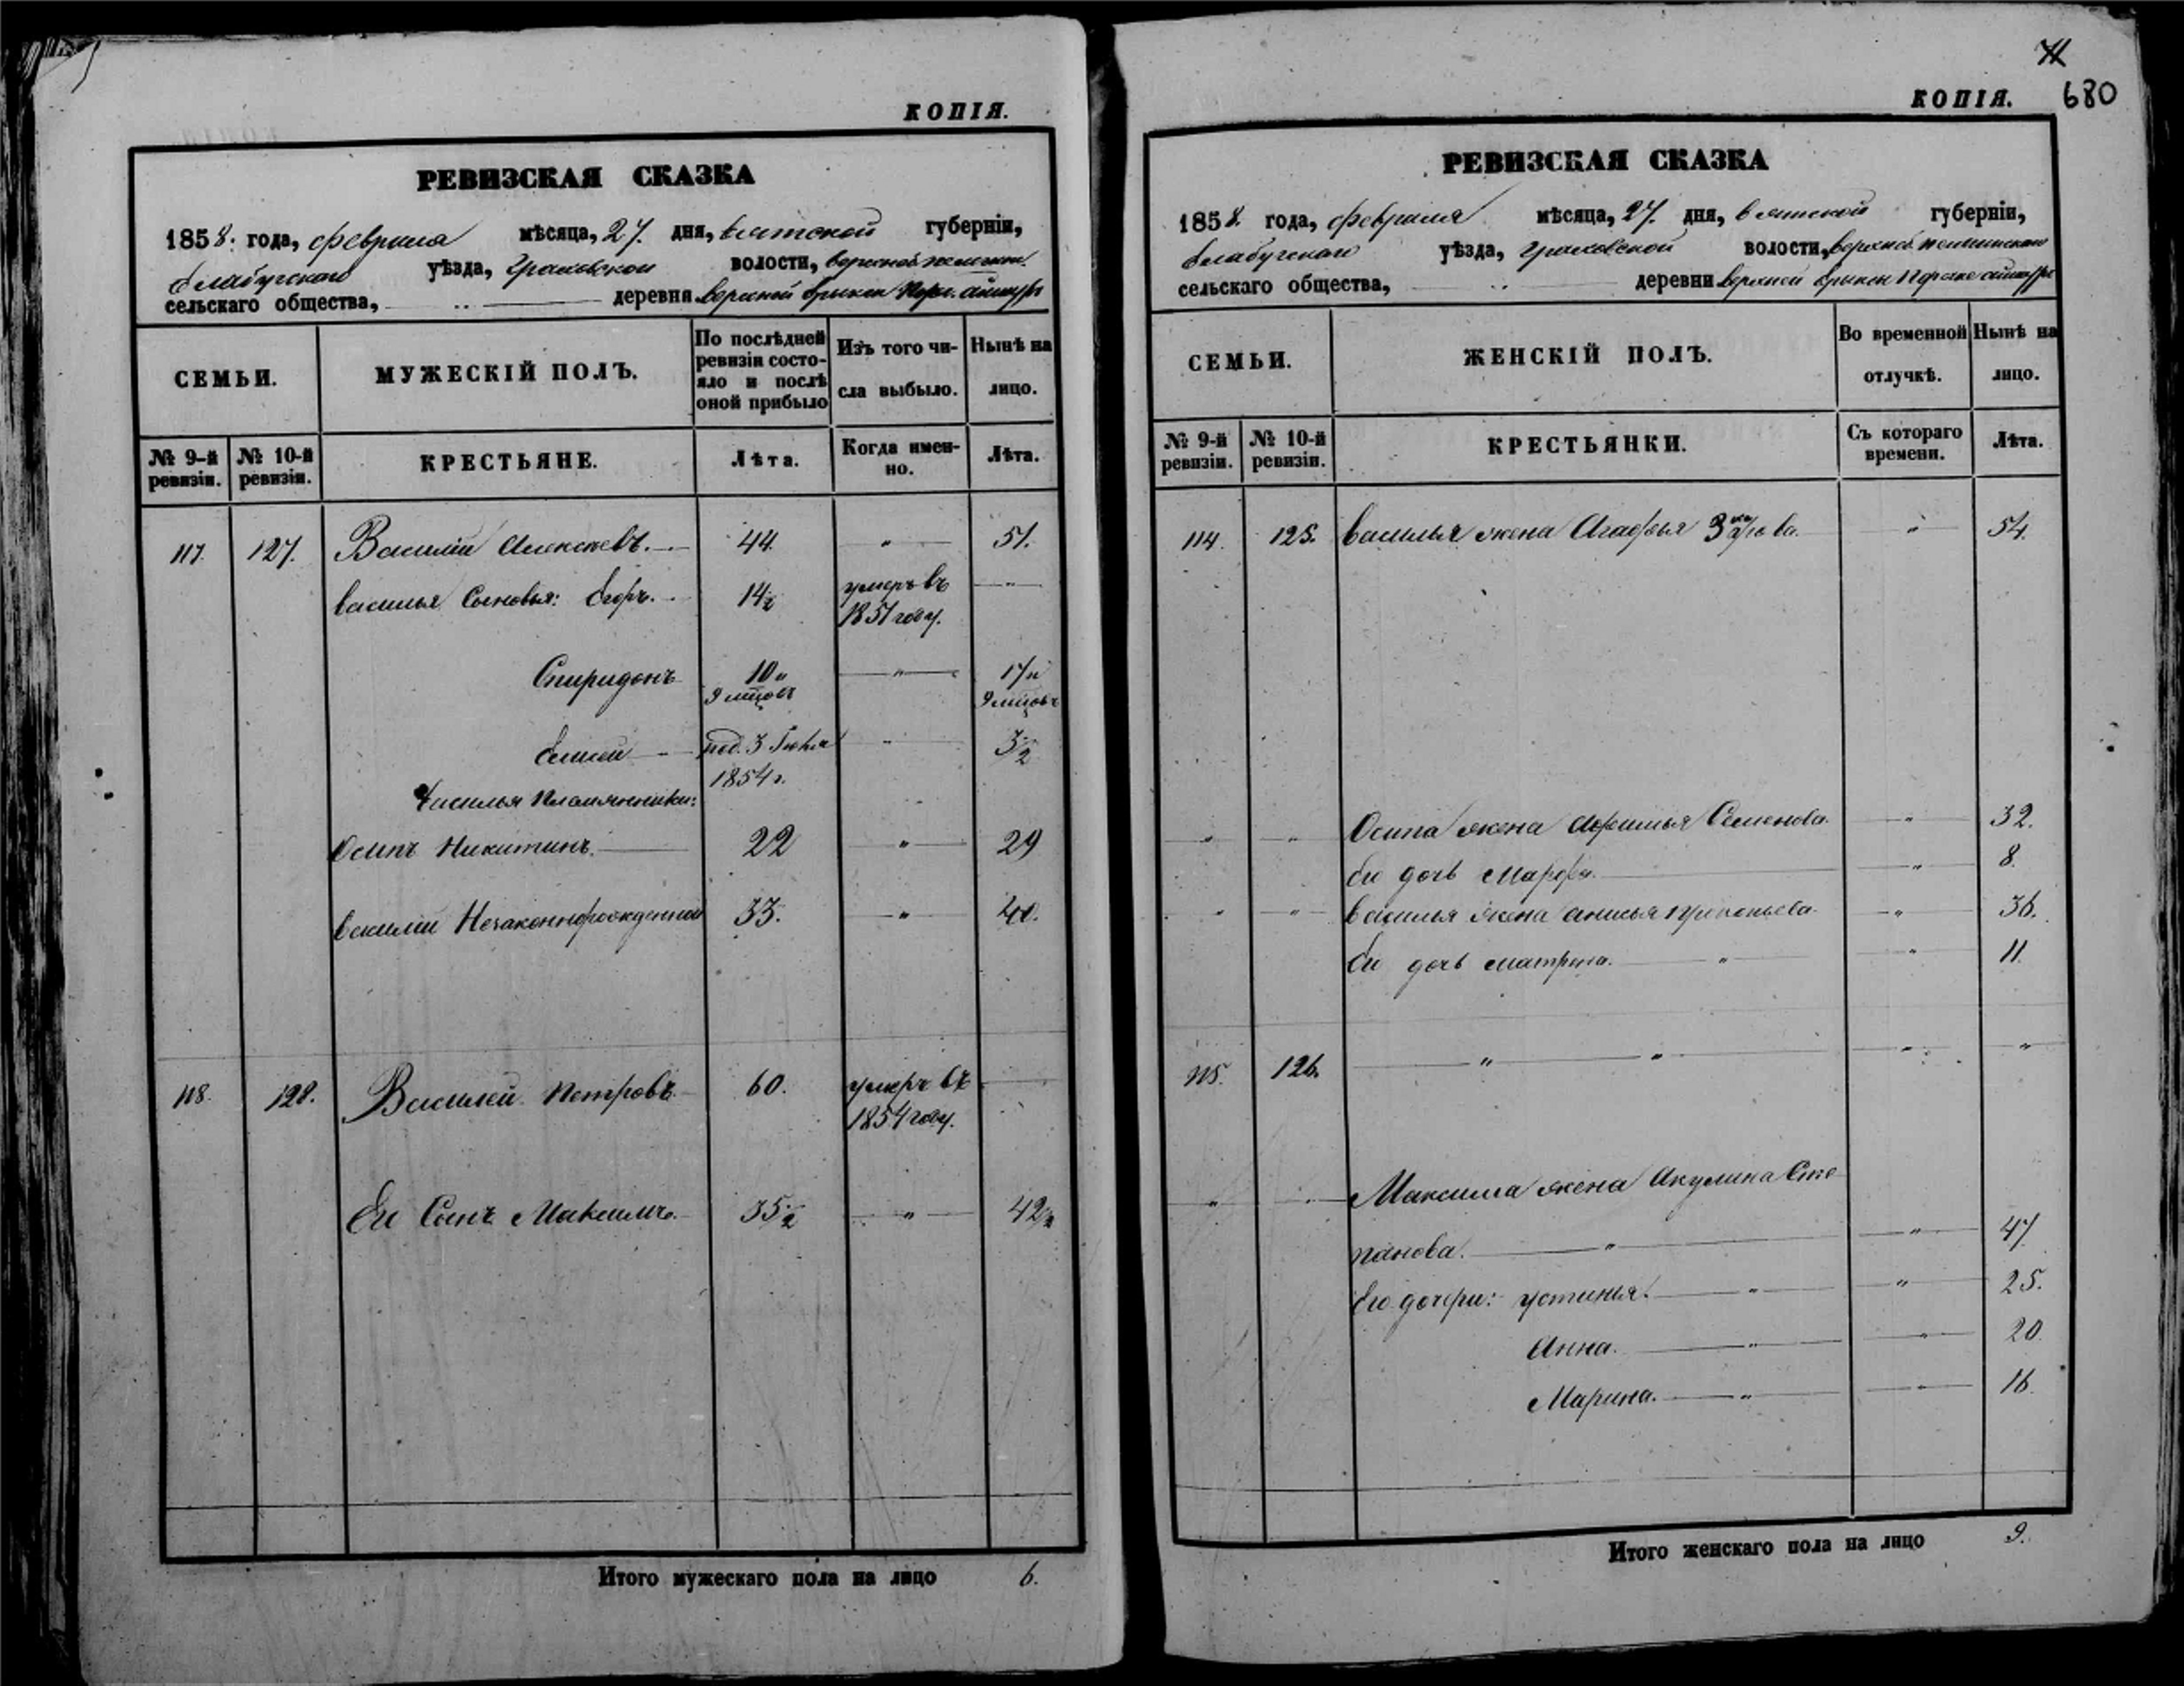 КОПІЯ.
РЕВИЗСКАЯ СКАЗКА
1858. года, февраля мѣсяца, 27. дня, вятской губерніи,
елабугскаго уѣзда, граховской волости,
сельскаго общества, деревни верхней
СЕМЬИ.
МУЖЕСКІЙ ПОЛЪ.
По послѣдней ревизіи состояло и послѣ оной прибыло
Изъ того числа выбыло.
Нынѣ на лицо.
№ 9-й ревизіи.
№ 10-й ревизіи.
КРЕСТЬЯНЕ.
Лѣта.
Когда именно.
Лѣта.
117. 127. Василій Алексѣевъ. 44. " 51.
василья Сыновья: Егоръ. 14½ умеръ въ 1851 году. "
Спиридонъ 10 " 9 мцовъ " 17 " 9 мцовъ
Елисей род. 3 Іюля 1854 г. " 3½
василья племянники:
Осипъ Никитинъ. 22 " 29
василій Незаконнорожденный 33. " 40.
118. 128. Василей Петровъ. 60. умеръ въ 1854 году.
Ег Сынъ Максимъ. 35½ " 42½
Итого мужескаго пола на лицо 6.
КОПІЯ. 680
РЕВИЗСКАЯ СКАЗКА
1858. года, февраля мѣсяца, 27. дня, вятской губерніи,
елабугскаго уѣзда, граховской волости,
сельскаго общества, деревни верхней
СЕМЬИ.
ЖЕНСКІЙ ПОЛЪ.
Во временной отлучкѣ.
Нынѣ на лицо.
№ 9-й ревизіи.
№ 10-й ревизіи.
КРЕСТЬЯНКИ.
Съ котораго времени.
Лѣта.
114. 125. василья жена Агафья " 54.
" " Осипа жена Семенова. " 32.
Ею дочь Марфа. " 8.
" " василья жена анисья прокопьева. " 36.
Ею дочь матрена. " " 11.
115. 126. " " " "
" Максима жена Акулина Сте
панова. " " 47
Его дочери: устинья. " " 25.
Анна. " " 20
Марина. " " 16.
Итого женскаго пола на лицо 9.